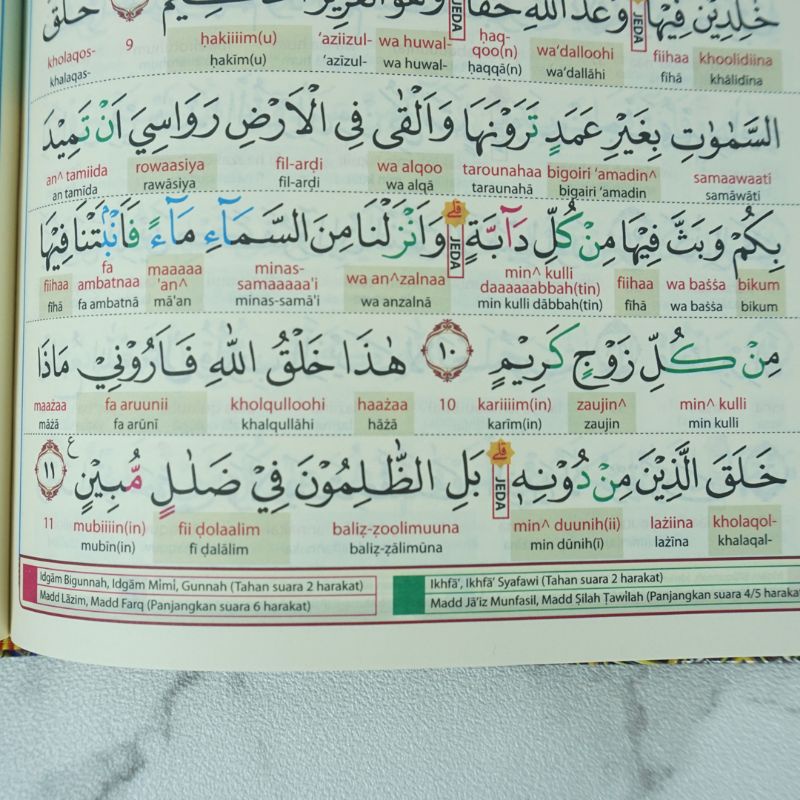 خٰلِدِيْنَ فِيْهَاۗ وَعْدَ اللّٰهِ حَقًّاۗ وَهُوَ الْعَزِيْزُ الْحَكِيْمُ ٩ خَلَقَ
khoolidiina fiihaa wa‘dalloohi haq-qoo(n) wa huwal- ‘aziizul- ḥakiiiim(u) 9 kholaqos-
khālidīna fīhā wa‘dallāhi ḥaqqā(n) wa huwal- ‘azīzul- ḥakīm(u) khalaqas-
السَّمٰوٰتِ بِغَيْرِ عَمَدٍ تَرَوْنَهَا وَاَلْقٰى فِى الْاَرْضِ رَوَاسِيَ اَنْ تَمِيْدَ
samaawaati bigoiri ‘amadin^ tarounahaa wa alqoo fil-arḍi rowaasiya an^ tamiida
samāwāti bigairi ‘amadin taraunahā wa alqā fil-arḍi rawāsiya an tamīda
بِكُمْ وَبَثَّ فِيْهَا مِنْ كُلِّ دَاۤبَّةٍۗ وَاَنْزَلْنَا مِنَ السَّمَاۤءِ مَاۤءً فَاَنْۢبَتْنَا فِيْهَا
bikum wa bašša fiihaa min^ kulli daaaaaabbah(tin) wa an^zalnaa minas-samaaaaa'i maaaaa'an^ fa ambatnaa fiihaa
bikum wa bašša fīhā min kulli dābbah(tin) wa anzalnā minas-samā'i mā'an fa ambatnā fīhā
مِنْ كُلِّ زَوْجٍ كَرِيْمٍ ١٠ هٰذَا خَلْقُ اللّٰهِ فَاَرُوْنِيْ مَاذَا
min^ kulli zaujin^ kariiiim(in) 10 haażaa kholqulloohi fa aruunii maażaa
min kulli zaujin karīm(in) hāżā khalqullāhi fa arūnī māżā
خَلَقَ الَّذِيْنَ مِنْ دُوْنِهٖۗ بَلِ الظّٰلِمُوْنَ فِيْ ضَلٰلٍ مُّبِيْنٍ ١١ ع
kholaqol- lażiina min^ duunih(ii) baliẓ-ẓoolimuuna fii ḍolaalim mubiiiin(in) 11
khalaqal- lażīna min dūnih(ī) baliẓ-ẓālimūna fī ḍalālim mubīn(in)
JEDA
JEDA
JEDA
JEDA
Idgām Bigunnah, Idgām Mimi, Gunnah (Tahan suara 2 harakat)
Madd Lāzim, Madd Farq (Panjangkan suara 6 harakat)
Ikhfā', Ikhfā' Syafawi (Tahan suara 2 harakat)
Madd Jā'iz Munfasil, Madd Ṣilah Ṭawilah (Panjangkan suara 4/5 harakat